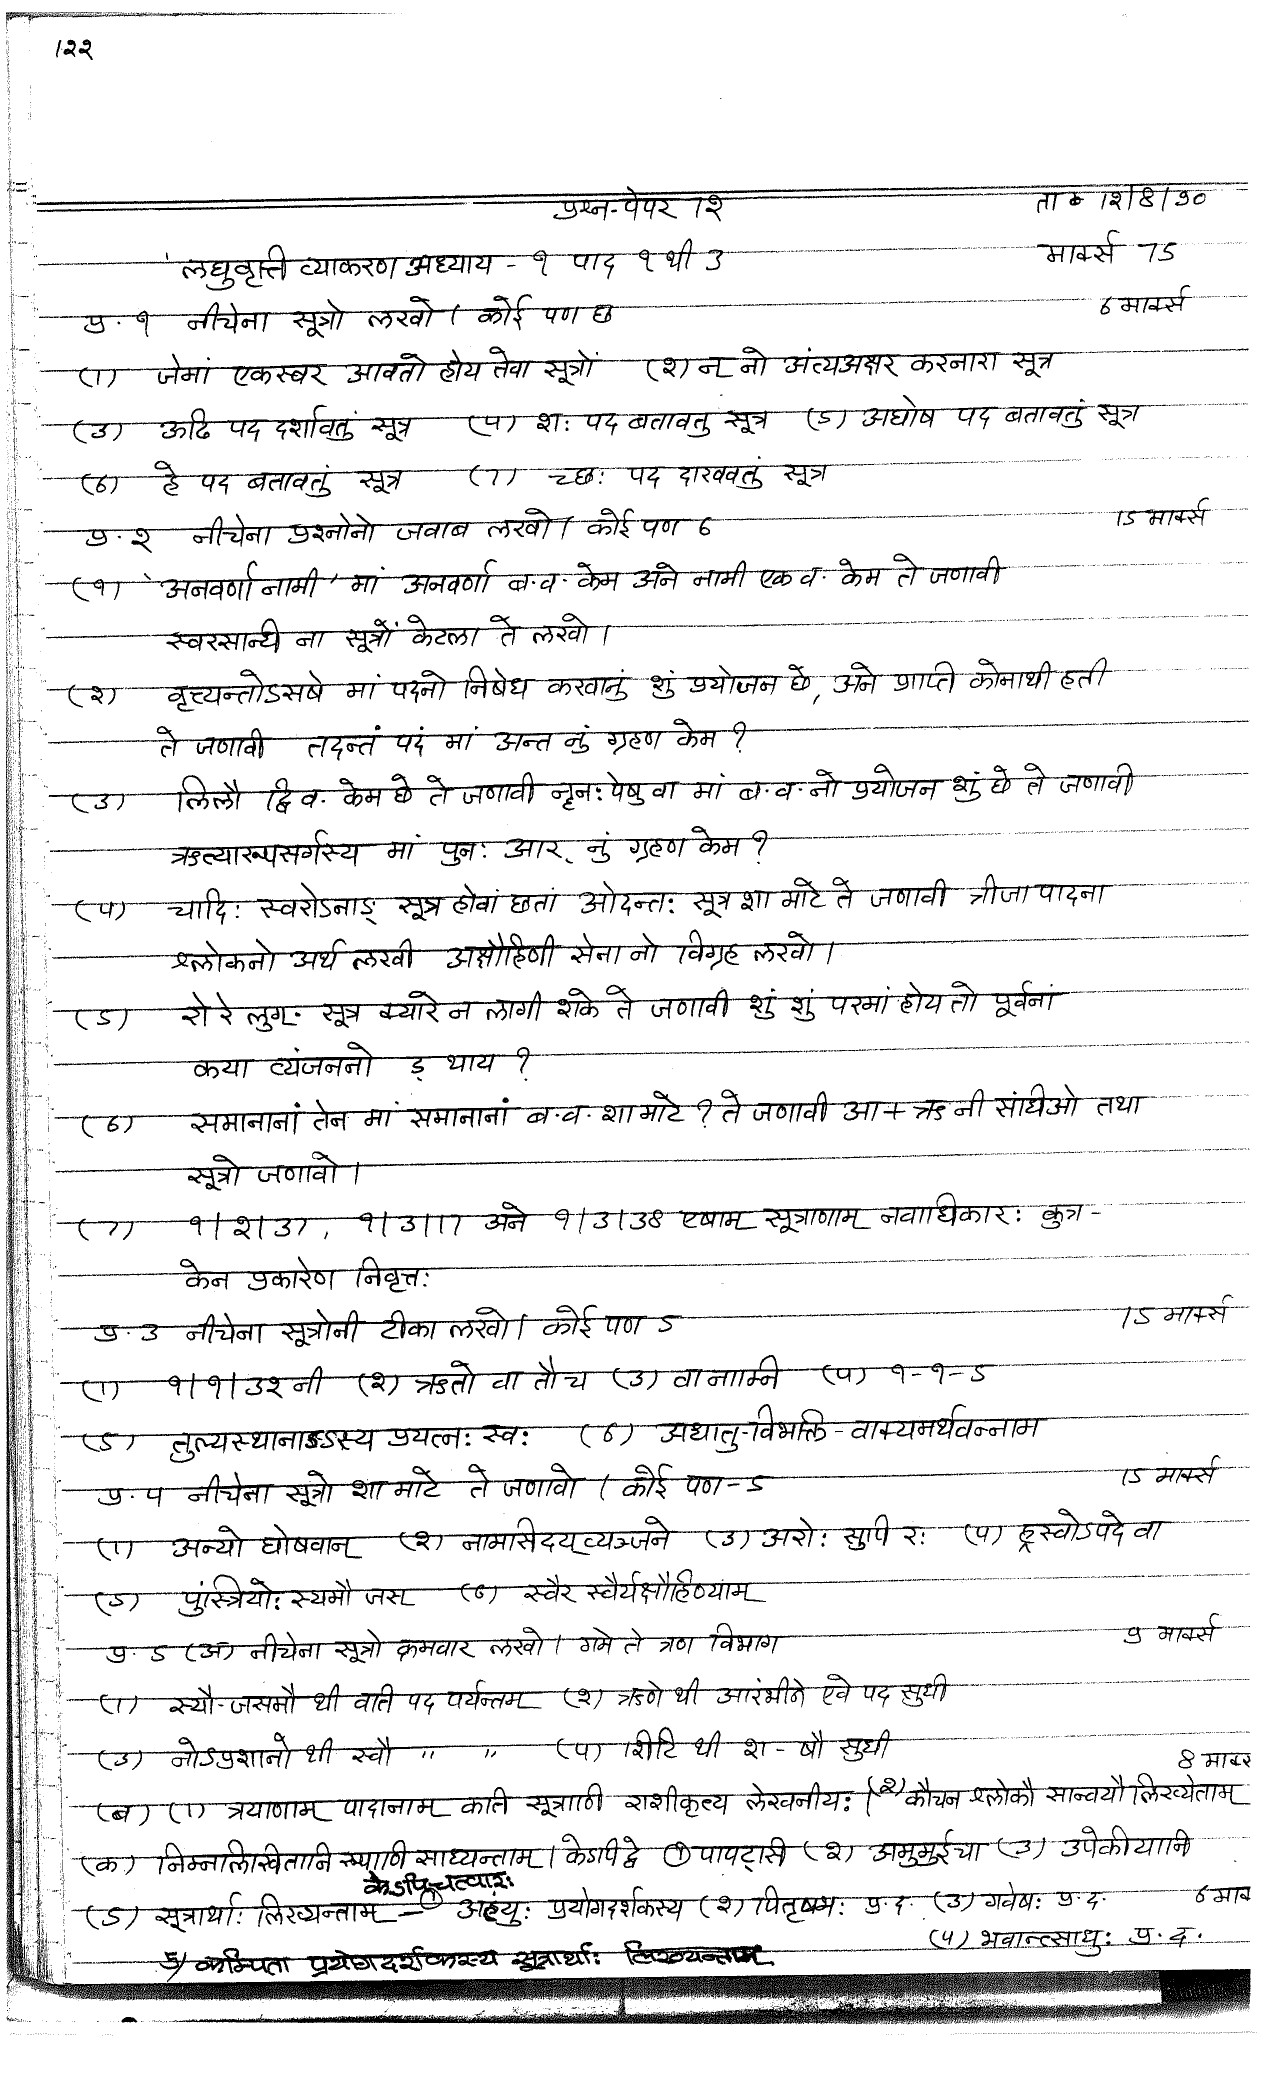 122
प्रश्न-पेपर 12 ता. 12/8/90
लघुवृत्ति व्याकरण अध्याय - १ पाद १ थी 3 मार्क्स 75
प्र. १ नीचेना सूत्रो लखो। कोई पण छ 6 मार्क्स
(1) जेमां एकस्वर आवतो होय तेवा सूत्रों (२) न् नो अंत्यअक्षर करनारा सूत्र
(3) ऊटि पद दर्शावतुं सूत्र (५) शः पद बतावतु सूत्र (5) अघोष पद बतावतुं सूत्र
(6) हे पद बतावतुं सूत्र (7) च्छः पद दाखवतुं सूत्र
प्र. २ नीचेना प्रश्नोनो जवाब लखो। कोई पण 6 15 मार्क्स
(१) 'अनवर्णा नामी' मां अनवर्णा ब.व. केम अने नामी एक व. केम ते जणावी
स्वरसन्धी ना सूत्रों केटला ते लखो।
(२) वृत्त्यन्तोऽसषे मां पदनो निषेध करवानुं शुं प्रयोजन छे, अने प्राप्ति कोनाथी हती
ते जणावी तदन्तं पदं मां अन्त नुं ग्रहण केम ?
(3) लिलौ द्वि व. केम छे ते जणावी नृनः पेषु वा मां ब.व. नो प्रयोजन शुं छे ते जणावी
ऋत्यारूपसर्गस्य मां पुनः आर् नुं ग्रहण केम ?
(५) चादिः स्वरोऽनाङ् सूत्र होवां छतां ओदन्तः सूत्र शा माटे ते जणावी त्रीजा पादना
श्लोकनो अर्थ लखी अक्षौहिणी सेना नो विग्रह लखो।
(5) रो रे लुग्. सूत्र क्यारे न लागी शके ते जणावी शुं शुं परमां होय तो पूर्वनां
कया व्यंजननो ड् थाय ?
(6) समानानां तेन मां समानानां ब.व. शा माटे ? ते जणावी आ + ऋ नी संधिओ तथा
सूत्रो जणावो।
(7) १/२/37, १/3/17 अने १/3/38 एषाम् सूत्राणाम् नवाधिकारः कुत्र -
केन प्रकारेण निवृत्तः
प्र. 3 नीचेना सूत्रोनी टीका लखो। कोई पण 5 15 मार्क्स
(1) १/१/3२ नी (२) ऋतो वा तौ च (3) वा नाम्नि (५) १-१-5
(5) तुल्यस्थानाऽऽस्य प्रयत्नः स्वः (6) अधातु-विभक्ति-वाक्यमर्थवन्नाम
प्र. ५ नीचेना सूत्रो शा माटे ते जणावो। कोई पण-5 15 मार्क्स
(1) अन्यो घोषवान् (२) नामसिदय्व्यञ्जने (3) अरोः सुपि रः (५) ह्रस्वोऽपदे वा
(5) पुंस्त्रियोः स्यमौ जस् (6) स्वैर स्वैर्यक्षौहिण्याम्
प्र. 5 (अ) नीचेना सूत्रो क्रमवार लखो। गमे ते त्रण विभाग 9 मार्क्स
(1) स्यौ-जसमौ थी वाति पद पर्यन्तम् (२) ऋणे थी आरंभीने एवे पद सुधी
(3) नोऽप्रशानो थी स्वौ " " (५) शिटि थी श-षौ सुधी
8 मार्क्स
(ब) (1) त्रयाणाम् पादानाम् कति सूत्राणि राशीकृत्य लेखनीयः। (२) कौचन श्लोकौ सान्वयौ लिख्येताम्
(क) निम्नलिखितानि रूपाणि साध्यन्ताम्। केऽपि द्वे (1) पापट्सि (२) अमुमुईचा (3) उपेकीयानि
केऽपि चत्वारः
(5) सूत्रार्थाः लिख्यन्ताम् - (1) अहंयुः प्रयोगदर्शकस्य (२) पितृषभः प्र. द. (3) गवेषः प्र. द. 6 मार्क
(५) भवान्त्साधुः प्र. द.